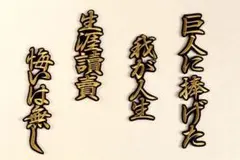 巨人に捧げた
我が人生
生涯讀賣
悔いは無し